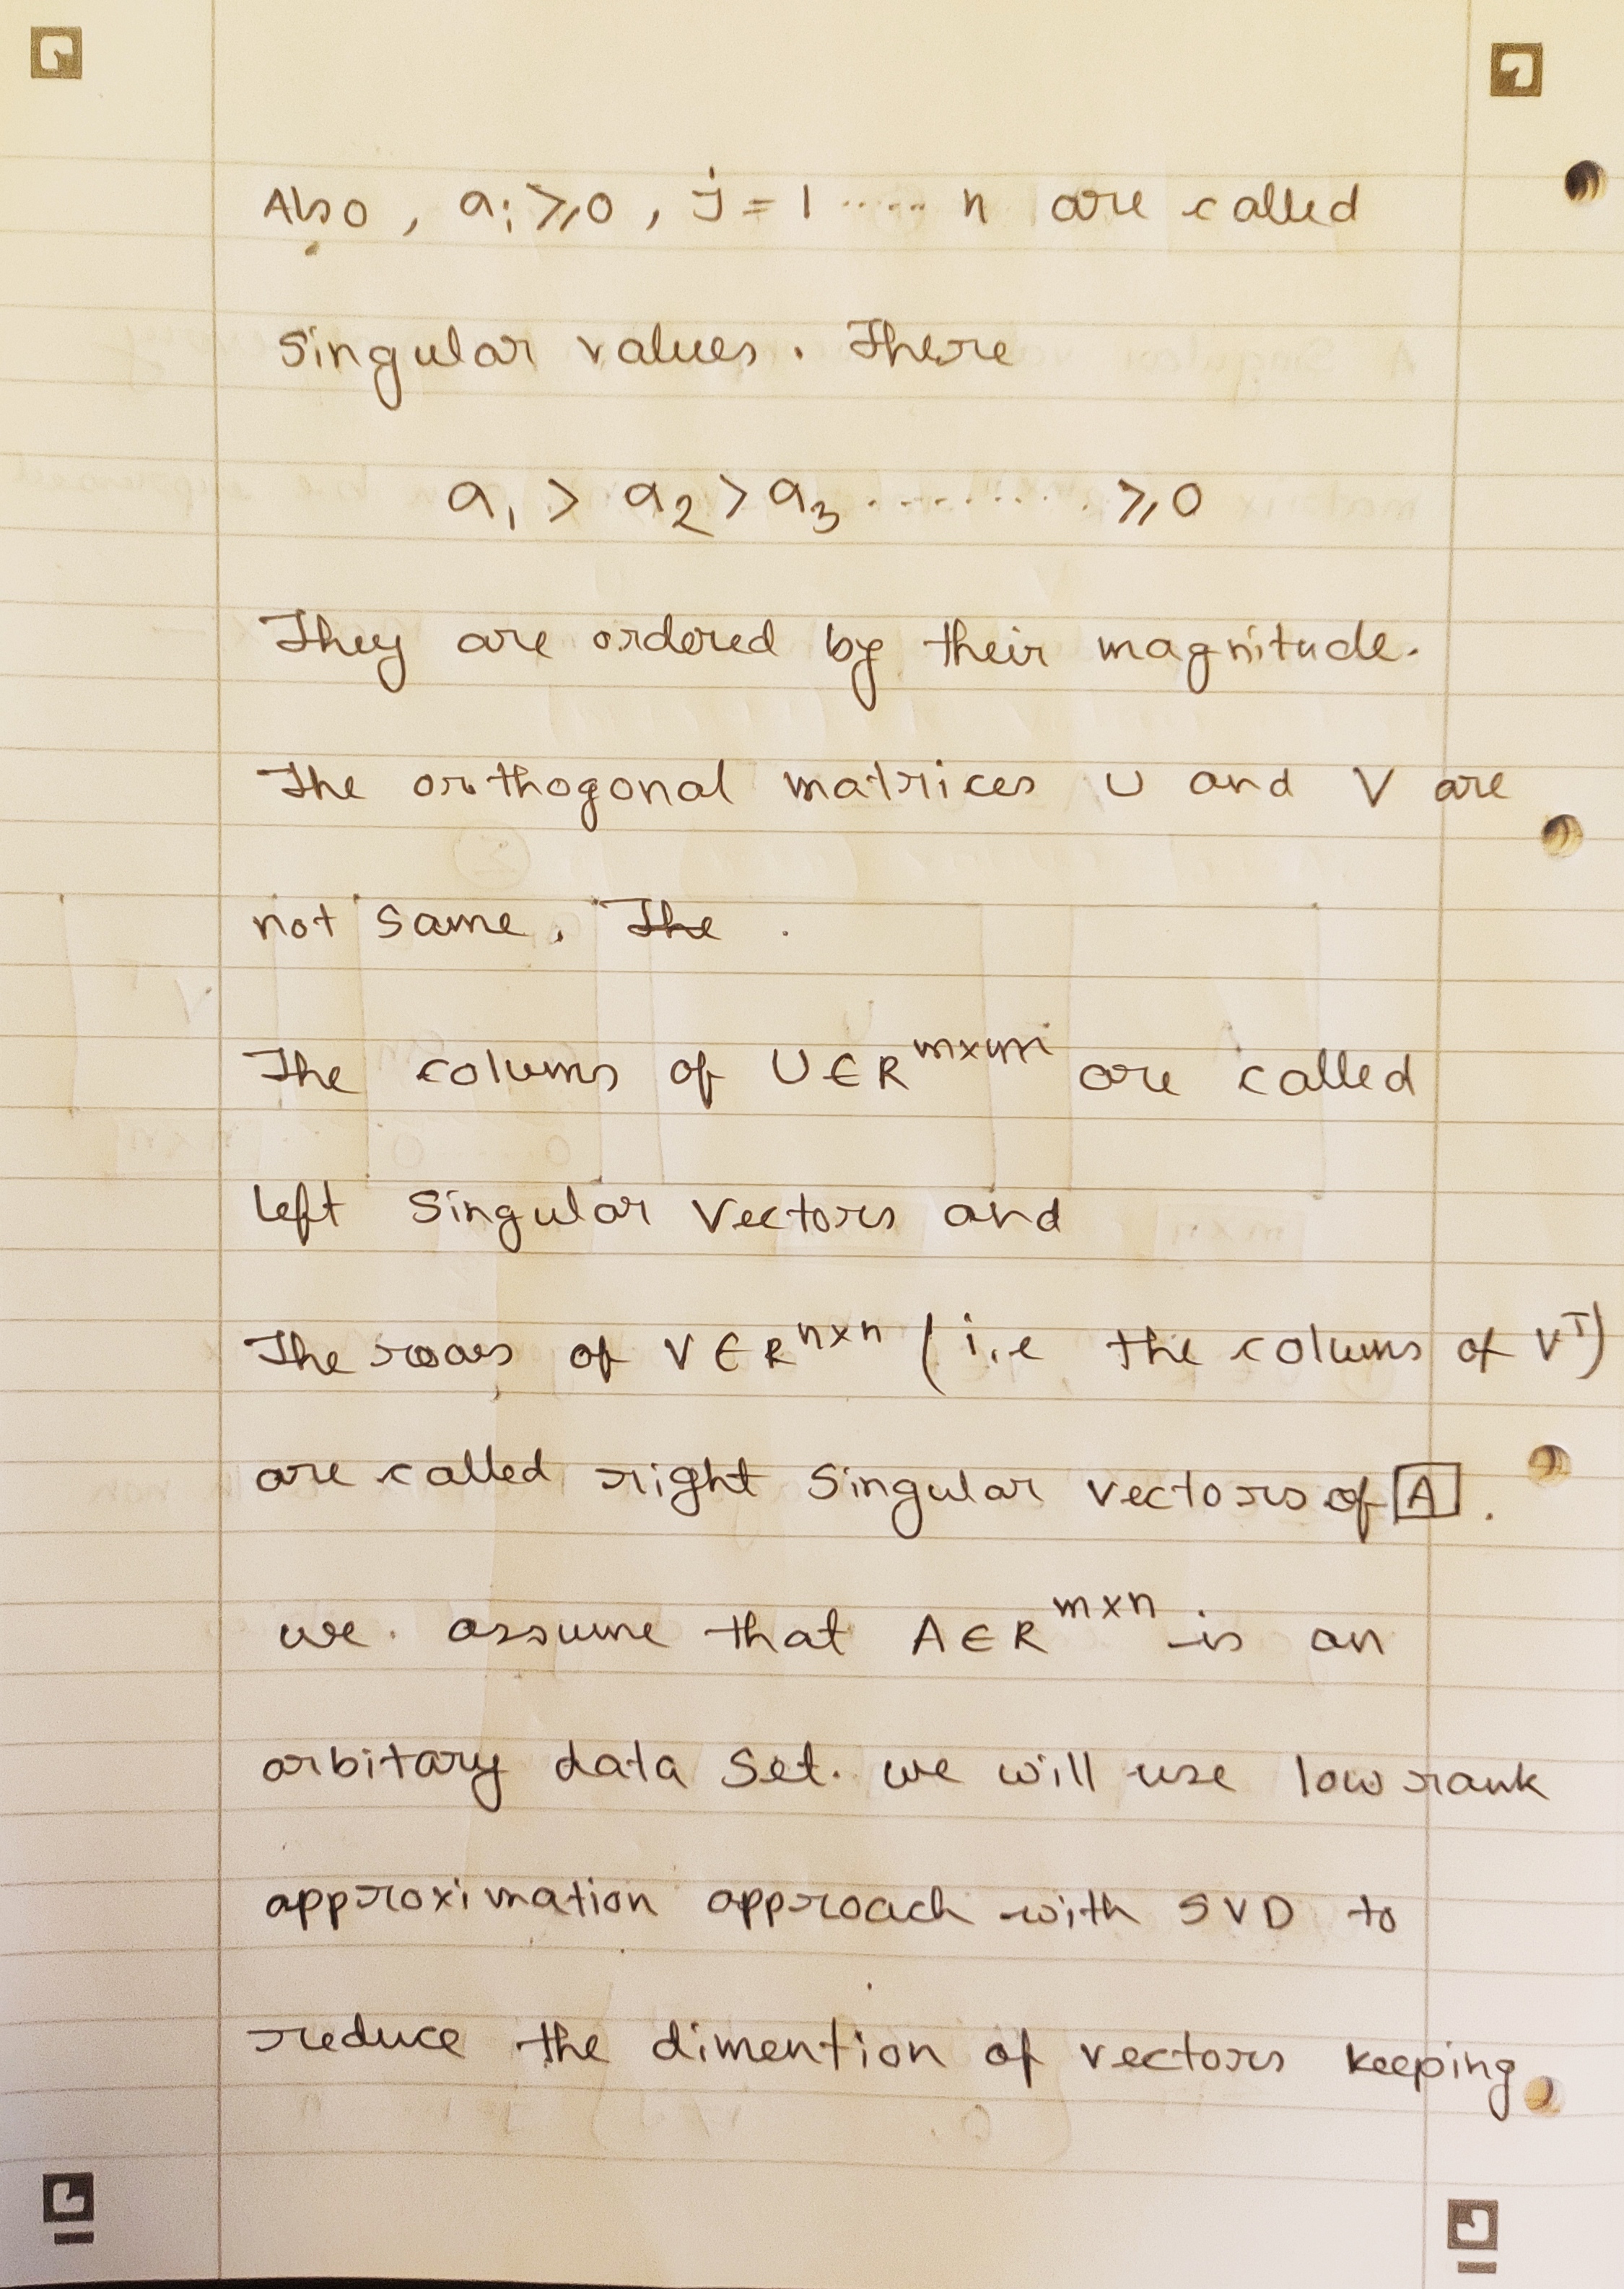 Also, aᵢ ≥ 0, j = 1 ..... n are called
Singular values. There
a₁ > a₂ > a₃ .......... ≥ 0
They are ordered by their magnitude.
The orthogonal matrices U and V are
not same. The .
The colums of U ∈ R^mxm are called
left Singular Vectors and
The rows of V ∈ R^nxn (i.e the colums of V^T)
are called right Singular vectors of A.
we assume that A ∈ R^mxn is an
arbitary data Set. we will use low rank
approximation approach with SVD to
reduce the dimention of vectors keeping